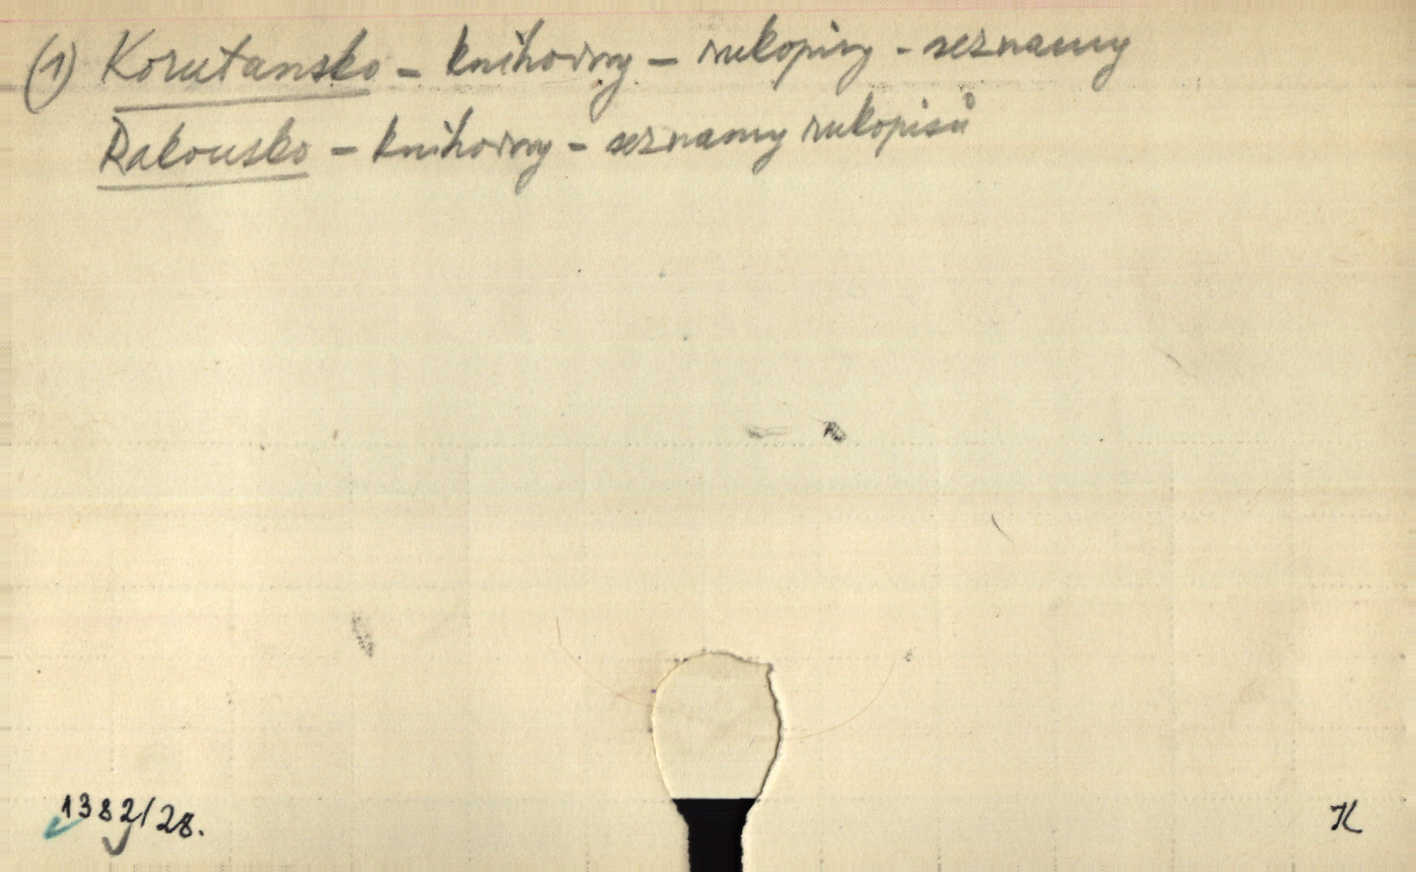 (1) Korutansko - knihovny - rukopisy - seznamy
Rakousko - knihovny - seznamy rukopisů
1382/28.
K